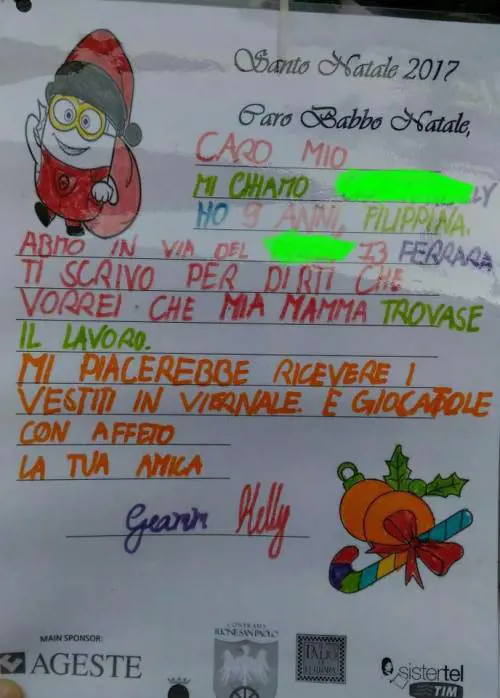 Santo Natale 2017
Caro Babbo Natale,
CARO MIO
MI CHIAMO LLY
HO 9 ANNI, FILIPPINA.
ABITO IN VIA DEL 13 FERRARA
TI SCRIVO PER DIRTI CHE
VORREI CHE MIA MAMMA TROVASE
IL LAVORO.
MI PIACEREBBE RICEVERE I
VESTITI IN VIERNALE. E GIOCATTOLE
CON AFFETO
LA TUA AMICA
Kelly
MAIN SPONSOR:
AGESTE
CONTRADA
RIONE SAN PAOLO
PALIO
DI FERRARA
sistertel
TIM